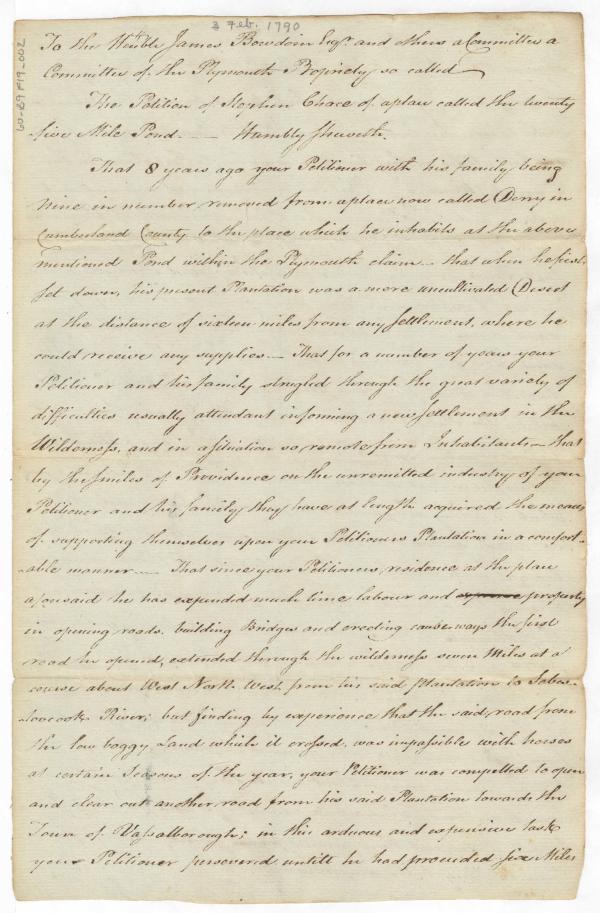 3 Feb. 1790
60-89 F19-002
To the Honble James Bowdoin Esqr. and others a Committee a
Committee of the Plymouth Propriety so called
The Petition of Stephen Chace of a place called the twenty
five Mile Pond. — Humbly sheweth.
That 8 years ago your Petitioner with his family being
Nine in number removed from a place now called Derry in
Cumberland County to the place which he inhabits at the above
mentioned Pond within the Plymouth claim — that when he first
set down, his present Plantation was a mere uncultivated Desert
at the distance of sixteen miles from any settlement, where he
could receive any supplies — That for a number of years your
Petitioner and his family strugled through the great variety of
difficulties usually attendant in forming a new settlement in the
Wilderness, and in a situation so remote from Inhabitants — that
by the smiles of Providence on the unremitted industry of your
Petitioner and his family they have at length acquired the means
of supporting themselves upon your Petitioners Plantation in a comfort-
-able manner — That since your Petitioners residence at the place
aforesaid he has expended much time labour and property
in opening roads. building Bridges and erecting causeways the first
road he opened, extended through the wilderness seven Miles at a
course about West North West from his said plantation to Sebas-
-toocook River; but finding by experience that the said road from
the low boggy Land which it crossed, was impassible with horses
at certain Seasons of the year, your Petitioner was compelled to open
and clear out another road from his said Plantation towards the
Town of Vassalborough; in this arduous and expensive task
your Petitioner persevered untill he had proceeded six Miles